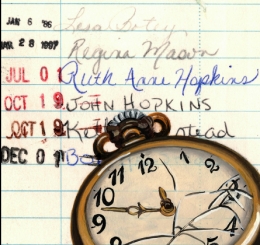 JAN 6 '86 Lesa Botey
MAR 28 1997 Regina Mason
JUL 01 Ruth Anne Hopkins
OCT 19 JOHN HOPKINS
OCT 19 stead
DEC 01
12 1 2 3
11 10 9 8 7